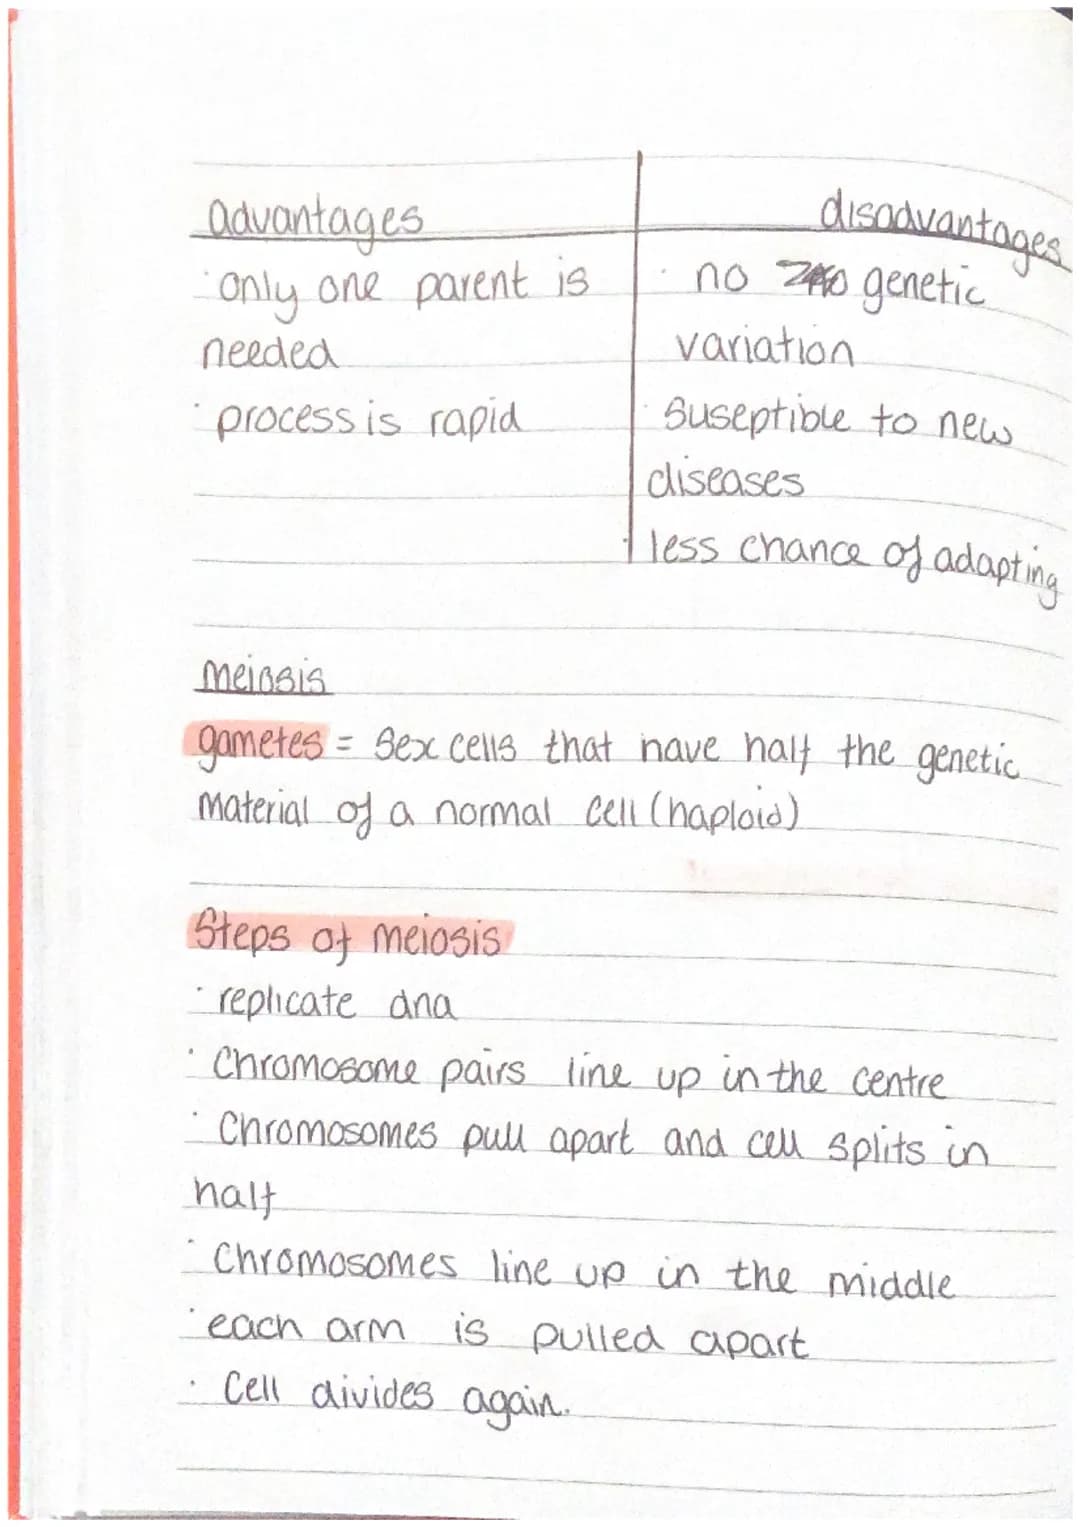 advantages
disadvantages
· only one parent is
needed
· process is rapid
· no genetic
variation
· suseptible to new
diseases
· less chance of adapting
meiosis
gametes = sex cells that have half the genetic
material of a normal cell (haploid)
Steps of meiosis
· replicate dna
· Chromosome pairs line up in the centre
· Chromosomes pull apart and cell splits in
half
· Chromosomes line up in the middle
· each arm is pulled apart
· Cell divides again.